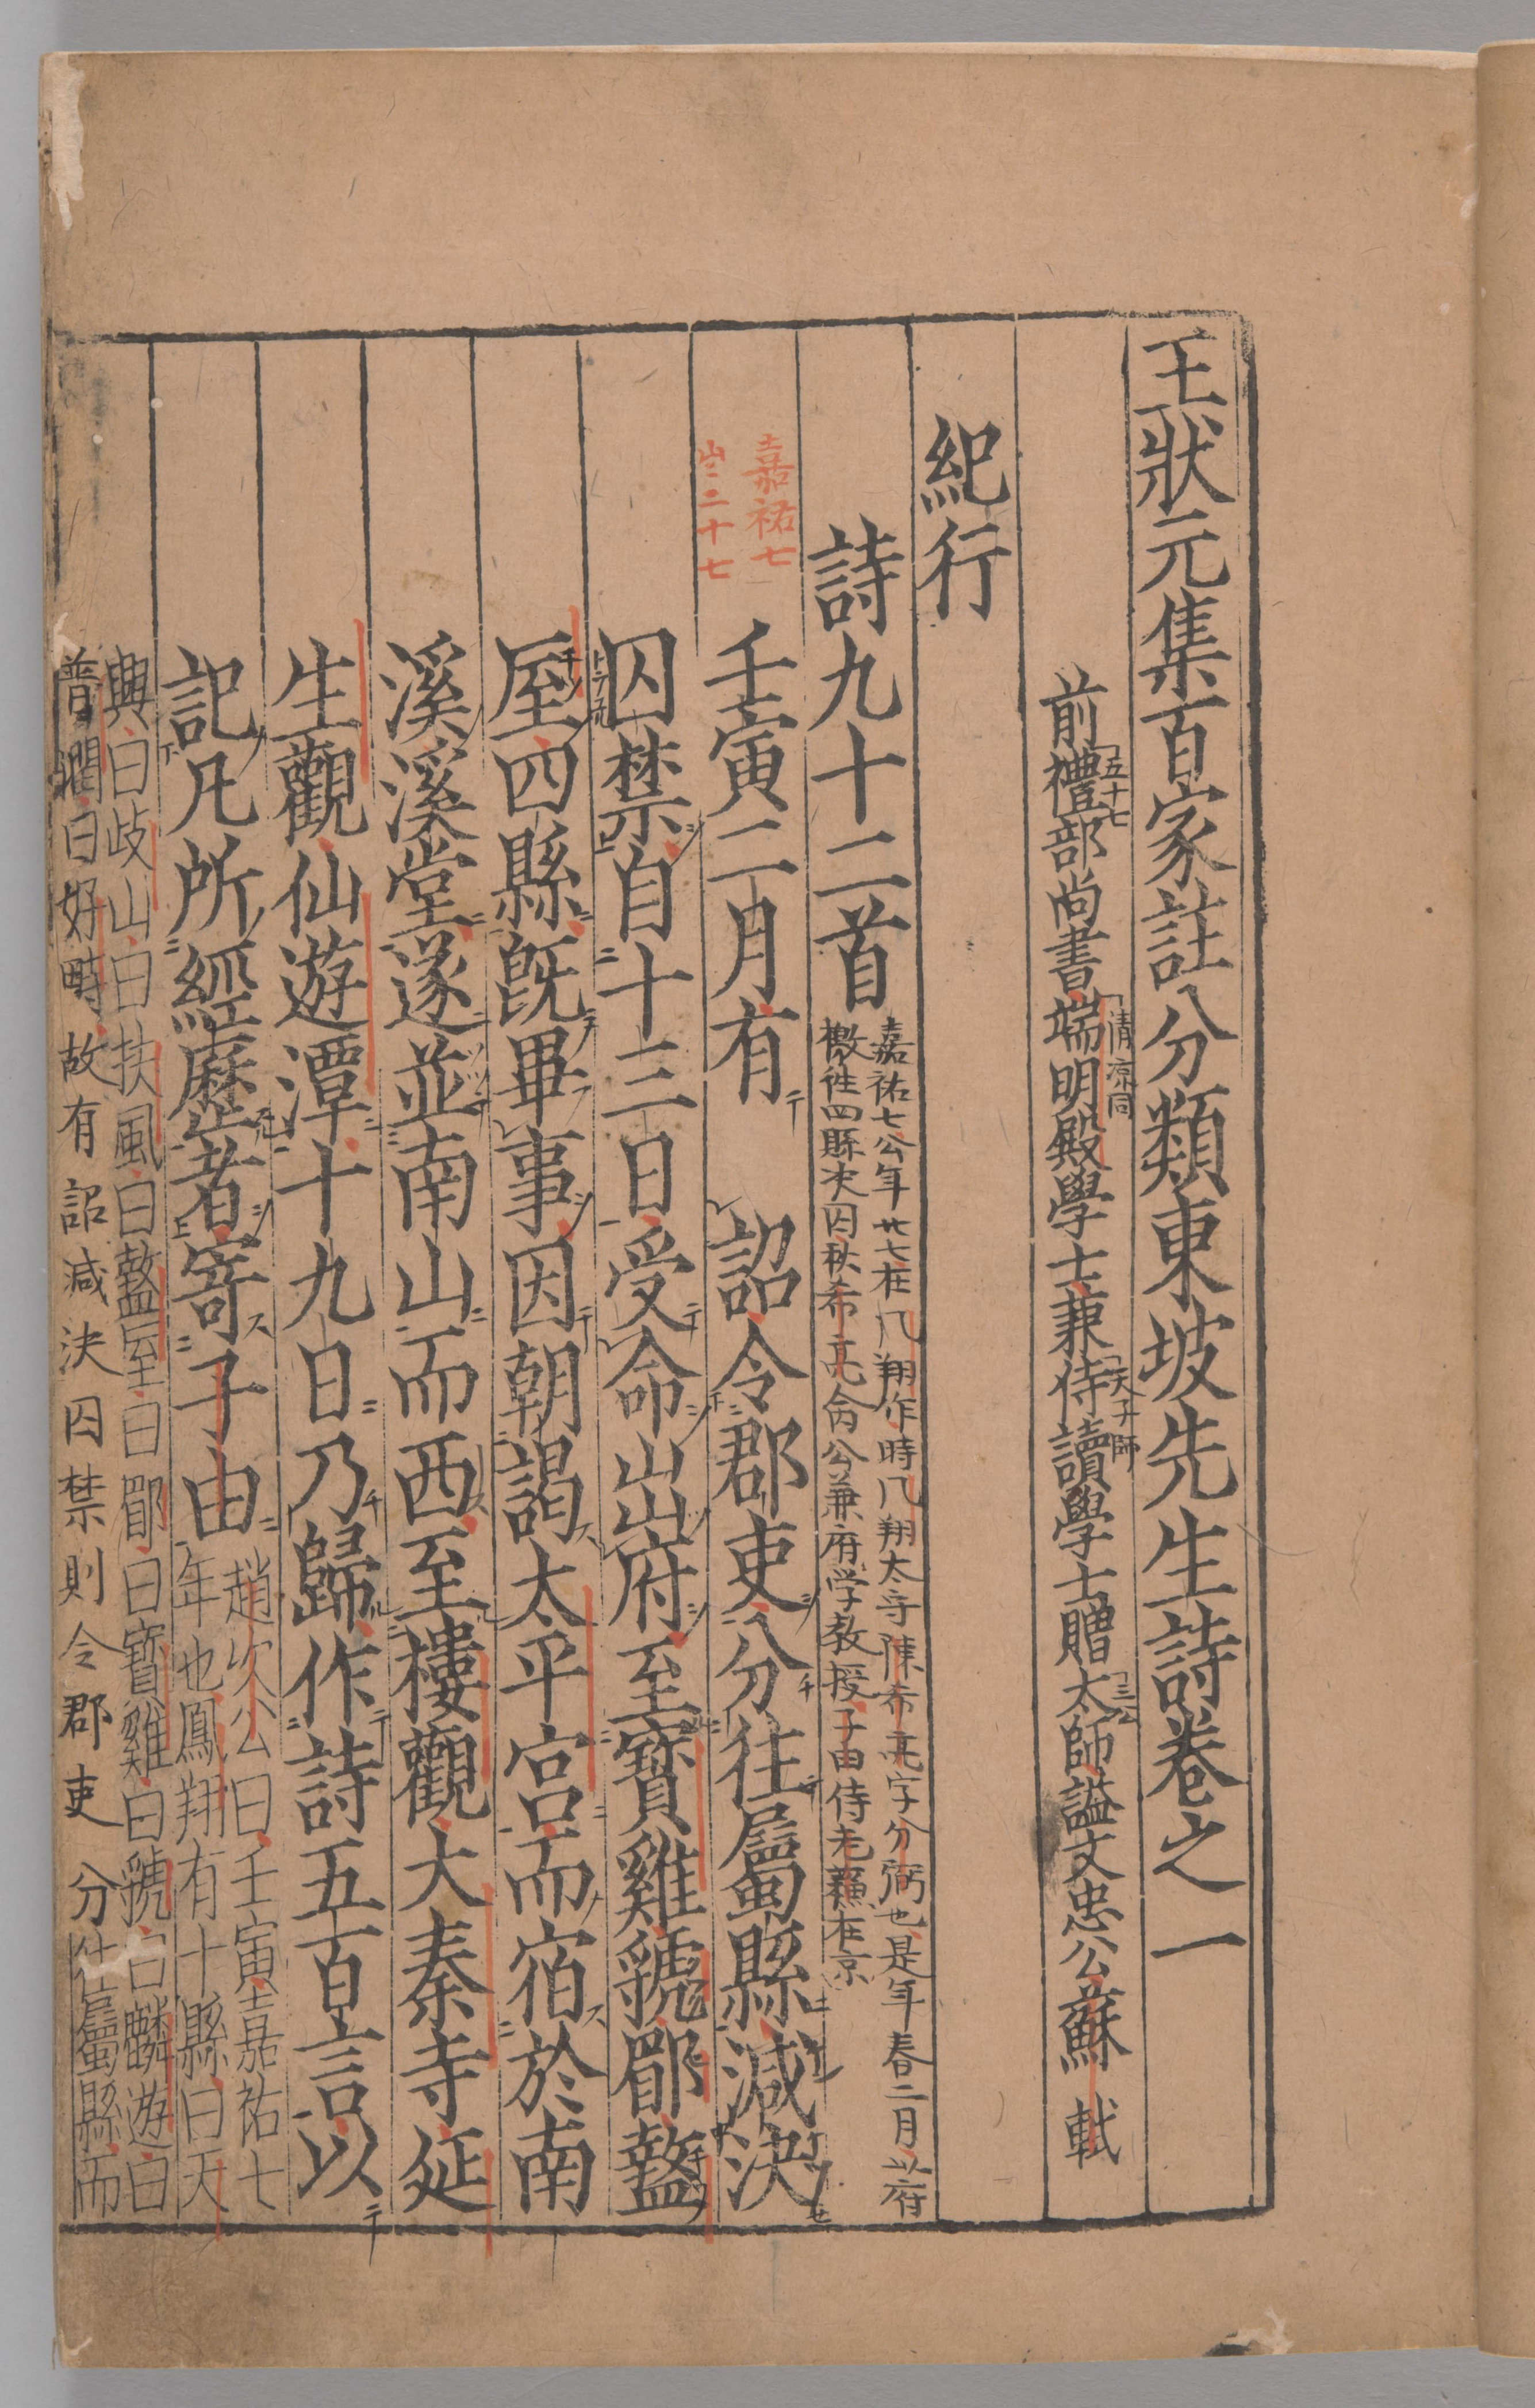 王狀元集百家註分類東坡先生詩卷之一
前禮部尚書端明殿學士兼侍讀學士贈太師謚文忠公蘇軾
五十七
清凉同
天子師
三公
紀行
詩九十二首
嘉祐七公年廿七在凢翔作時凢翔太守陳希亮字公弼也是年春二月以府
檄往四縣决囚秋希亮命公兼府学教授子由侍老蘓在京
嘉祐七
二十七
壬寅二月有 詔令郡吏分往屬縣減決
囚禁自十三日受命出府至寶雞虢郿盩
厔四縣旣畢事因朝謁太平宮而宿於南
溪溪堂遂並南山而西至樓觀大秦寺延
生觀仙遊潭十九日乃歸作詩五百言以
記凡所經歷者寄子由
趙次公曰壬寅嘉祐七
年也鳳翔有十縣曰天
興曰岐山曰扶風曰盩厔曰郿曰寶雞曰虢曰麟遊曰
普潤曰好畤故有詔減決囚禁則令郡吏分往屬縣而